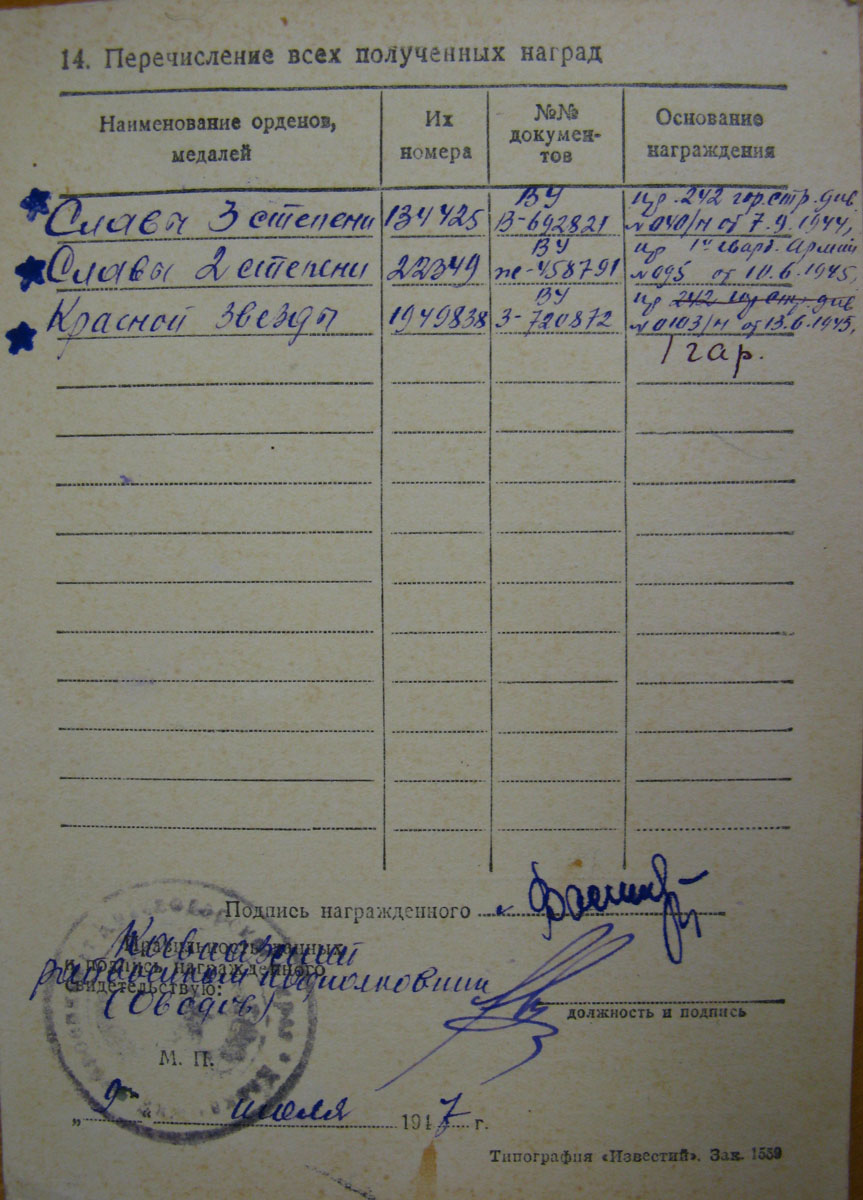 14. Перечисление всех полученных наград
Наименование орденов, медалей
Их номера
№№ докумен-тов
Основание награждения
Славы 3 степени 134425 ВУ В-692821 пр. 242 гор. стр. див №040/н от 7.9.1944,
Славы 2 степени 22349 ВУ ж-458791 пр 1й гвард. Армии №095 от 10.6.1945,
Красной звезды 1949838 ВУ З-720872 пр 242 гор стр. див №0103/н от 13.6.1945,
1 гар.
Подпись награжденного
Правильность данных
и подпись награжденного
свидетельствую:
подполковник
(Оводов)
должность и подпись
М. П.
„ 9 “ июля 1947 г.
Типография «Известий». Зак. 1559